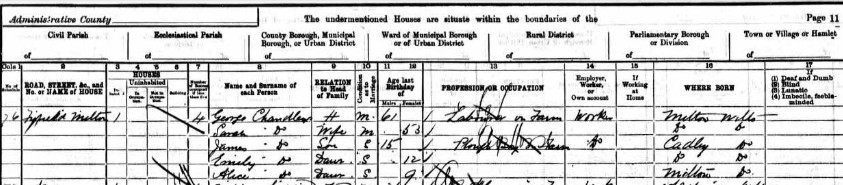 Administrative County The undermentioned Houses are situate within the boundaries of the Page 11
Civil Parish Ecclesiastical Parish County Borough, Municipal Borough, or Urban District Ward of Municipal Borough or of Urban District Rural District Parliamentary Borough or Division Town or Village or Hamlet
of of of of of of of
Cols 1 2 3 4 5 6 7 8 9 10 11 12 13 14 15 16 17
ROAD, STREET, &c., and No. or NAME of HOUSE HOUSES Uninhabited Building Name and Surname of each Person RELATION to Head of Family Condition as to Marriage Age last Birthday of Males Females PROFESSION OR OCCUPATION Employer, Worker, or Own account If Working at Home WHERE BORN If (1) Deaf and Dumb (2) Blind (3) Lunatic (4) Imbecile, feeble-minded
76 Milton 1 4 George Chandler H M 61 Labourer on Farm Worker Milton Wilts
Sarah Do Wife M 53 Do Do
James Do Son S 15 Farm Do Cadley Do
Emily Do Daur S 12 Do Do
Alice Do Daur S 9 Milton Do